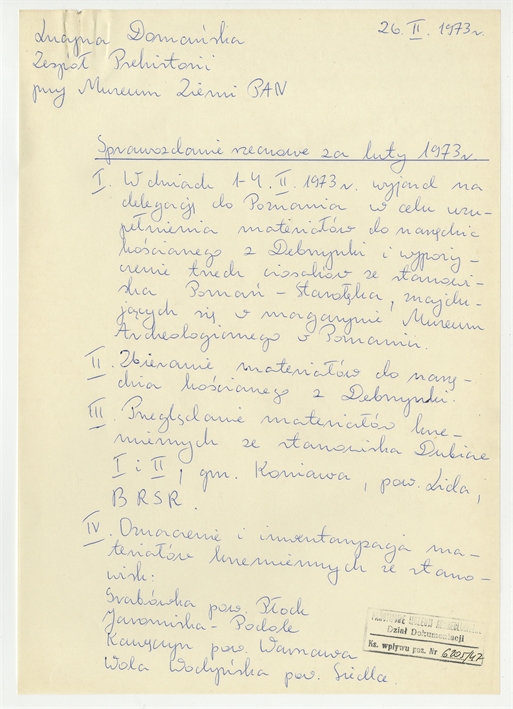 Lucyna Domańska
26. II. 1973 r.
Zespół Prehistorii
przy Muzeum Ziemi PAN
Sprawozdanie rzeczowe za luty 1973 r.
I. W dniach 1-4. II. 1973 r. wyjazd na
delegację do Poznania w celu uzu-
pełnienia materiałów do narzędzia
kościanego z Dębrzynki i wypoży-
czenie trzech ciosaków ze stanowi-
ska Poznań - Starołęka, znajdu-
jących się w magazynie Muzeum
Archeologicznego w Poznaniu.
II. Zbieranie materiałów do narzę-
dzia kościanego z Dębrzynki.
III. Przeglądanie materiałów krze-
miennych ze stanowiska Dubicze
I i II, gm. Koniawa, pow. Lida,
BRSR.
IV. Oznaczenie i inwentaryzacja ma-
teriałów krzemiennych ze stano-
wisk:
Grabówka pow. Płock
Jaromirka - Podole
Kawęczyn pow. Warszawa
Wola Wodyńska pow. Siedlce.
Dział Dokumentacji
Ks. wpływu poz. Nr 6205/47